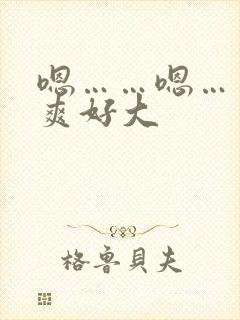 嗯……嗯…
爽好大
格鲁貝夫